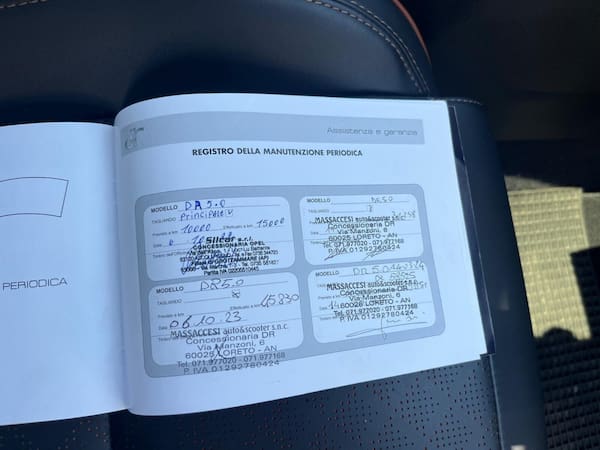 Assistenza e garanzia
REGISTRO DELLA MANUTENZIONE PERIODICA
PERIODICA
MODELLO DR 5.0
TAGLIANDO PrINCIPALE
Previsto a km 10000 Effettuato a km 15000
Data
Silcar
CONCESSIONARIA OPEL
MODELLO DR5.0
TAGLIANDO
MASSACCESI auto&scooter s.n.c.
Concessionaria DR
Via Manzoni, 6
60025 LORETO - AN
Tel. 071.977020 - 071.977168
P. IVA 01292780424
MODELLO DR5.0
TAGLIANDO
Previsto a km 45830
Data 06.10.23
MASSACCESI auto&scooter s.n.c.
Concessionaria DR
Via Manzoni, 6
60025 LORETO - AN
Tel. 071.977020 - 071.977168
P. IVA 01292780424
MODELLO DR 5.0
MASSACCESI auto&scooter s.n.c.
Concessionaria DR
Via Manzoni, 6
60025 LORETO - AN
Tel. 071.977020 - 071.977168
P. IVA 01292780424